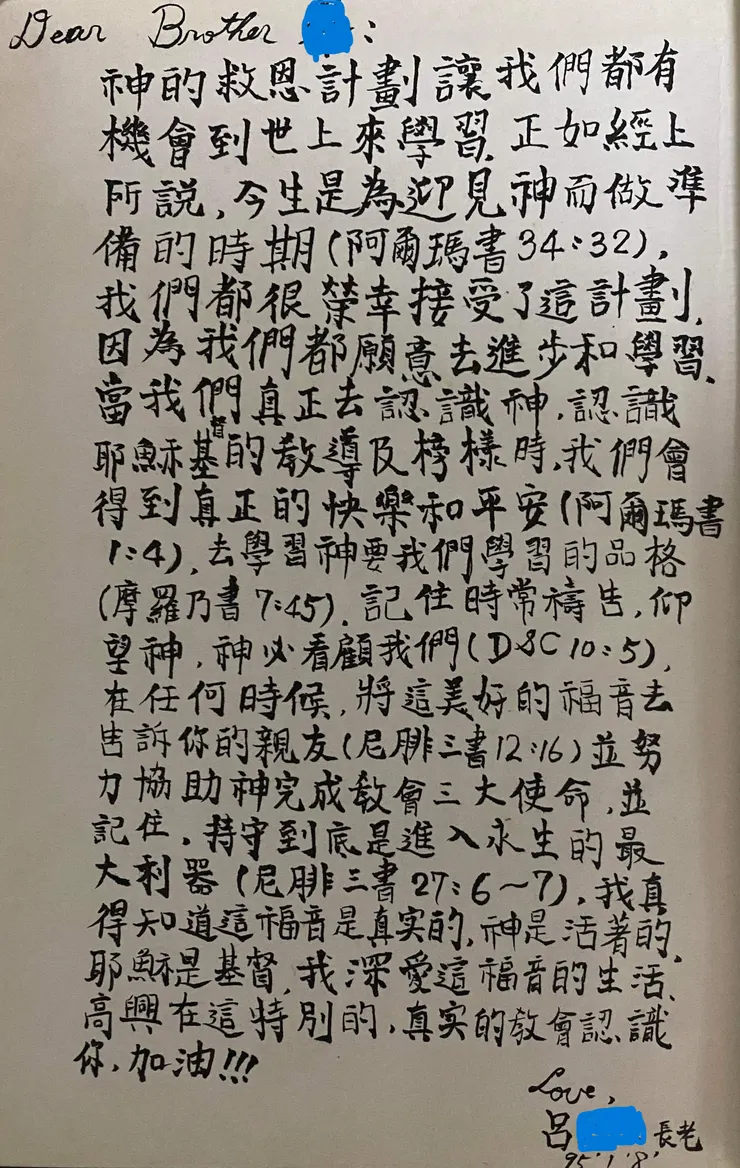 Dear Brother :
神的救恩計劃讓我們都有
機會到世上來學習.正如經上
所說,今生是為迎見神而做準
備的時期(阿爾瑪書34:32),
我們都很榮幸接受了這計劃,
因為我們都願意去進步和學習.
當我們真正去認識神,認識
耶穌基督的教導及榜樣時,我們會
得到真正的快樂和平安(阿爾瑪書
1:4),去學習神要我們學習的品格
(摩羅乃書7:45),記住時常禱告,仰
望神,神必看顧我們(D&C10:5),
在任何時候,將這美好的福音去
告訴你的親友(尼腓三書12:16)並努
力協助神完成教會三大使命,並
記住,持守到底是進入永生的最
大利器(尼腓三書27:6~7),我真
得知道這福音是真实的,神是活著的,
耶穌是基督,我深愛這福音的生活,
高興在這特別的,真实的教會認識
你,加油!!!
Love,
呂 長老
95'1'8'